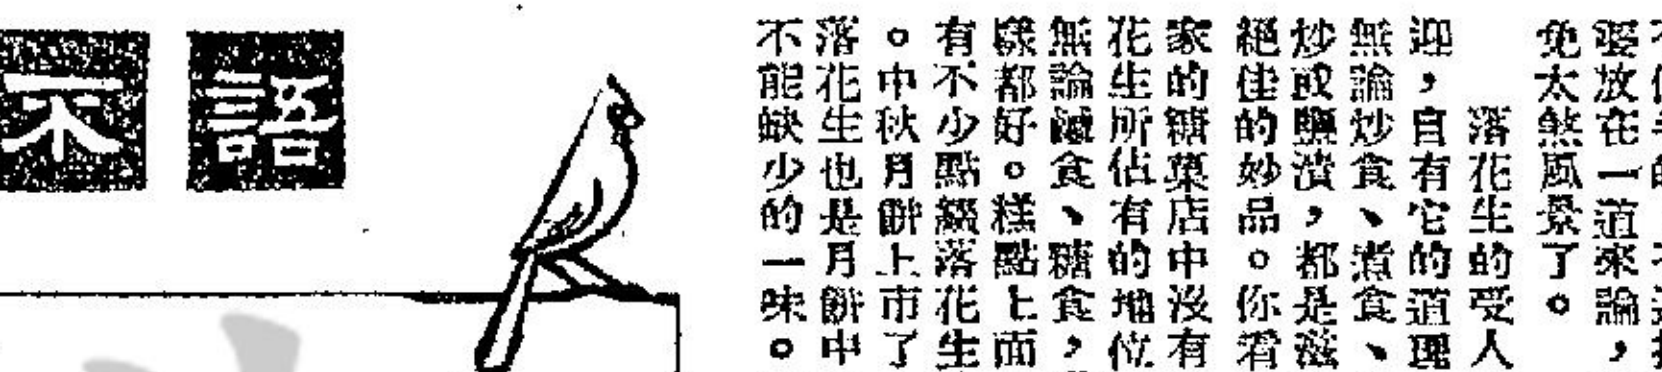 要放在一道來論，
免太煞風景了。
落花生的受人
迎，自有它的道理
無論炒食、煮食、
炒或鹽漬，都是滋
絕佳的妙品。你看
家的糖菓店中沒有
花生所佔有的地位
無論鹹食、糖食，
都好。糕點上面
有不少點綴落花生
。中秋月餅上市了
落花生也是月餅中
不能缺少的一味。
語
不